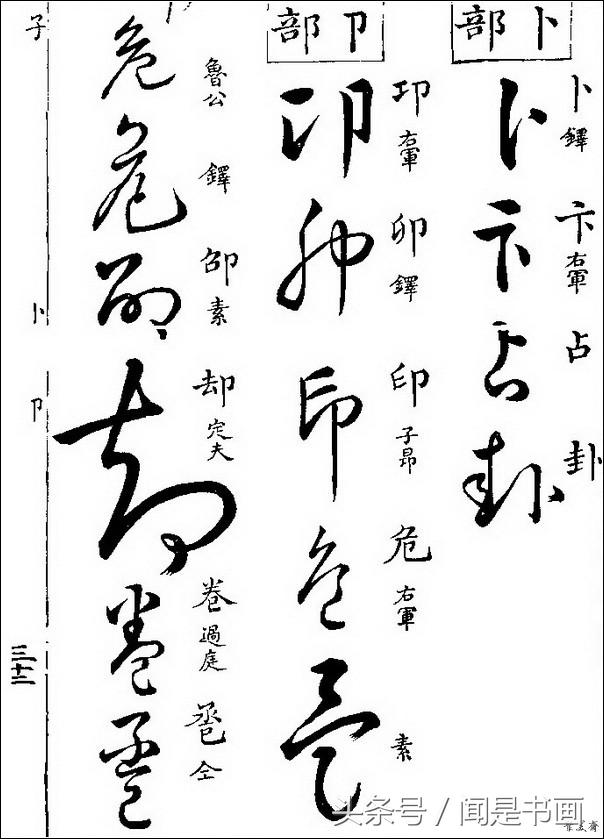 卜部
卜 鐸
卞 右軍
占
卦
卩部
卬 右軍
卯 鐸
印 子昂
危 右軍
素
魯公
鐸
邵 素
却 定夫
卷 過庭
卺 仝
子
卜
卩
三十二
头条号 / 闻是书画